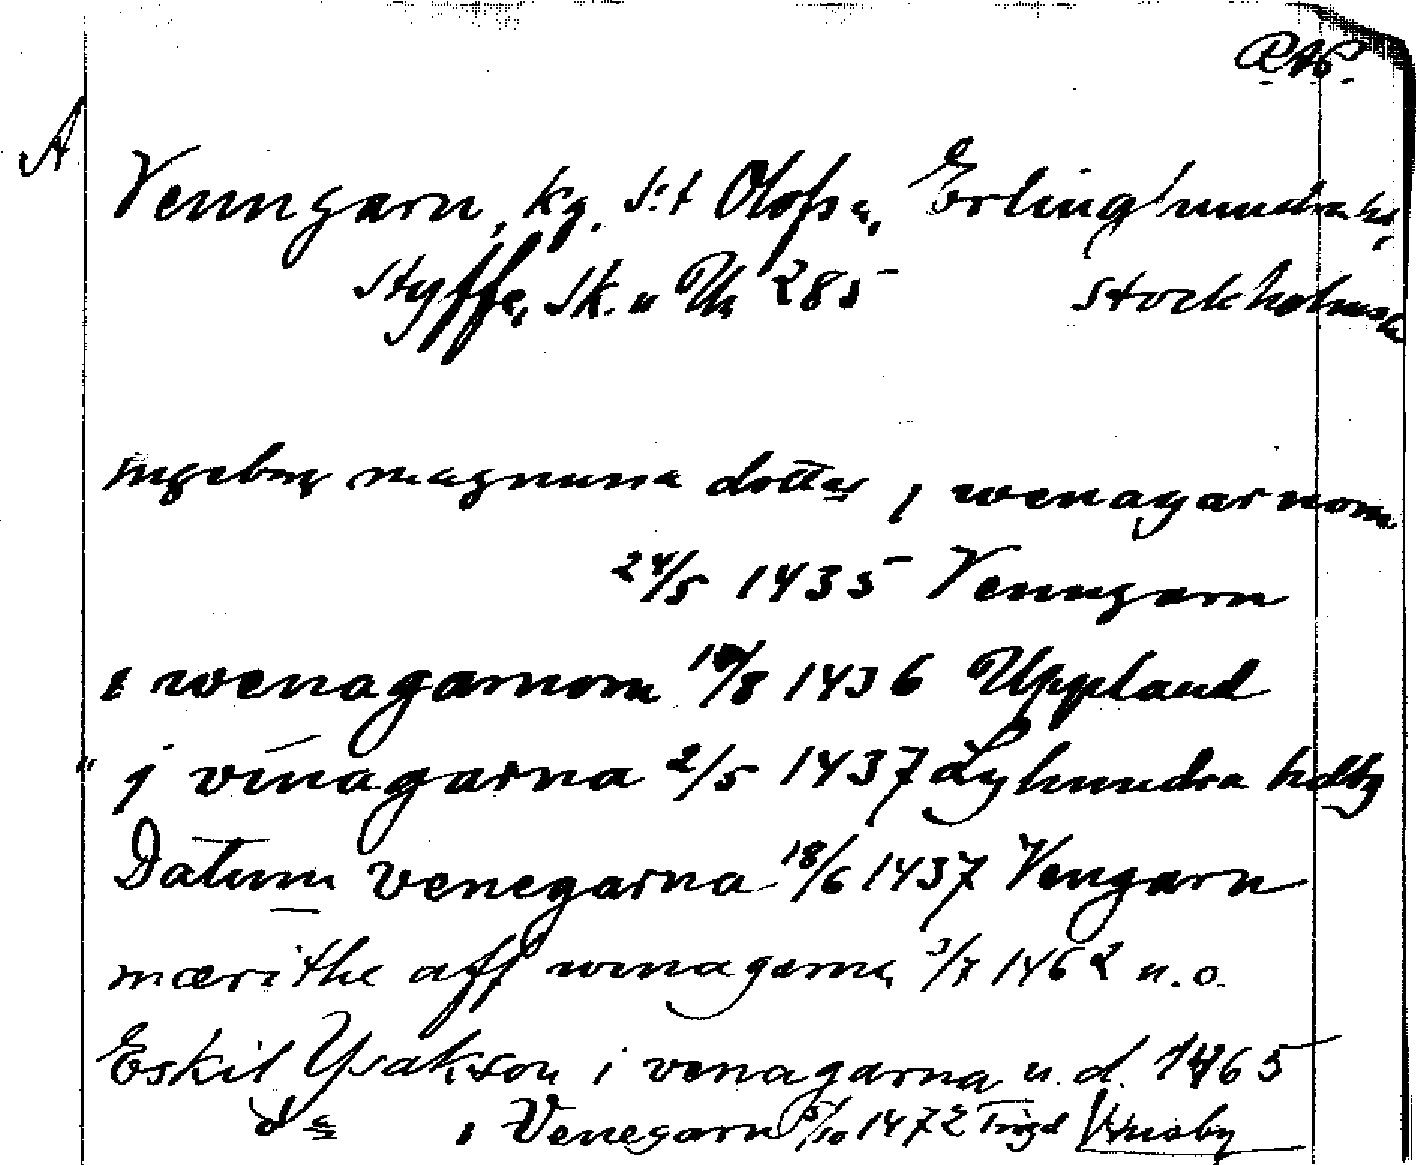 RAP.
A
Venngarn, kg. S:t Olofs s, Erlinghundra hd,
Styffe, Sk. u Un 285 Stockholms l.
Ingeborg magnusa dotter j wenagarnom
24/5 1435 Venngarn
i wenagarnom /8 1436 Uppland
" j vinagarna 2/5 1437 Lyhundra hdtg
Datum venegarna 18/6 1437 Vengarn
mærithe aff wenagarna 3/7 1462 u.o.
Eskil Ysakson i venagarna u.d. 1465
do i Venegarn 5/10 1472 Tingd Husby